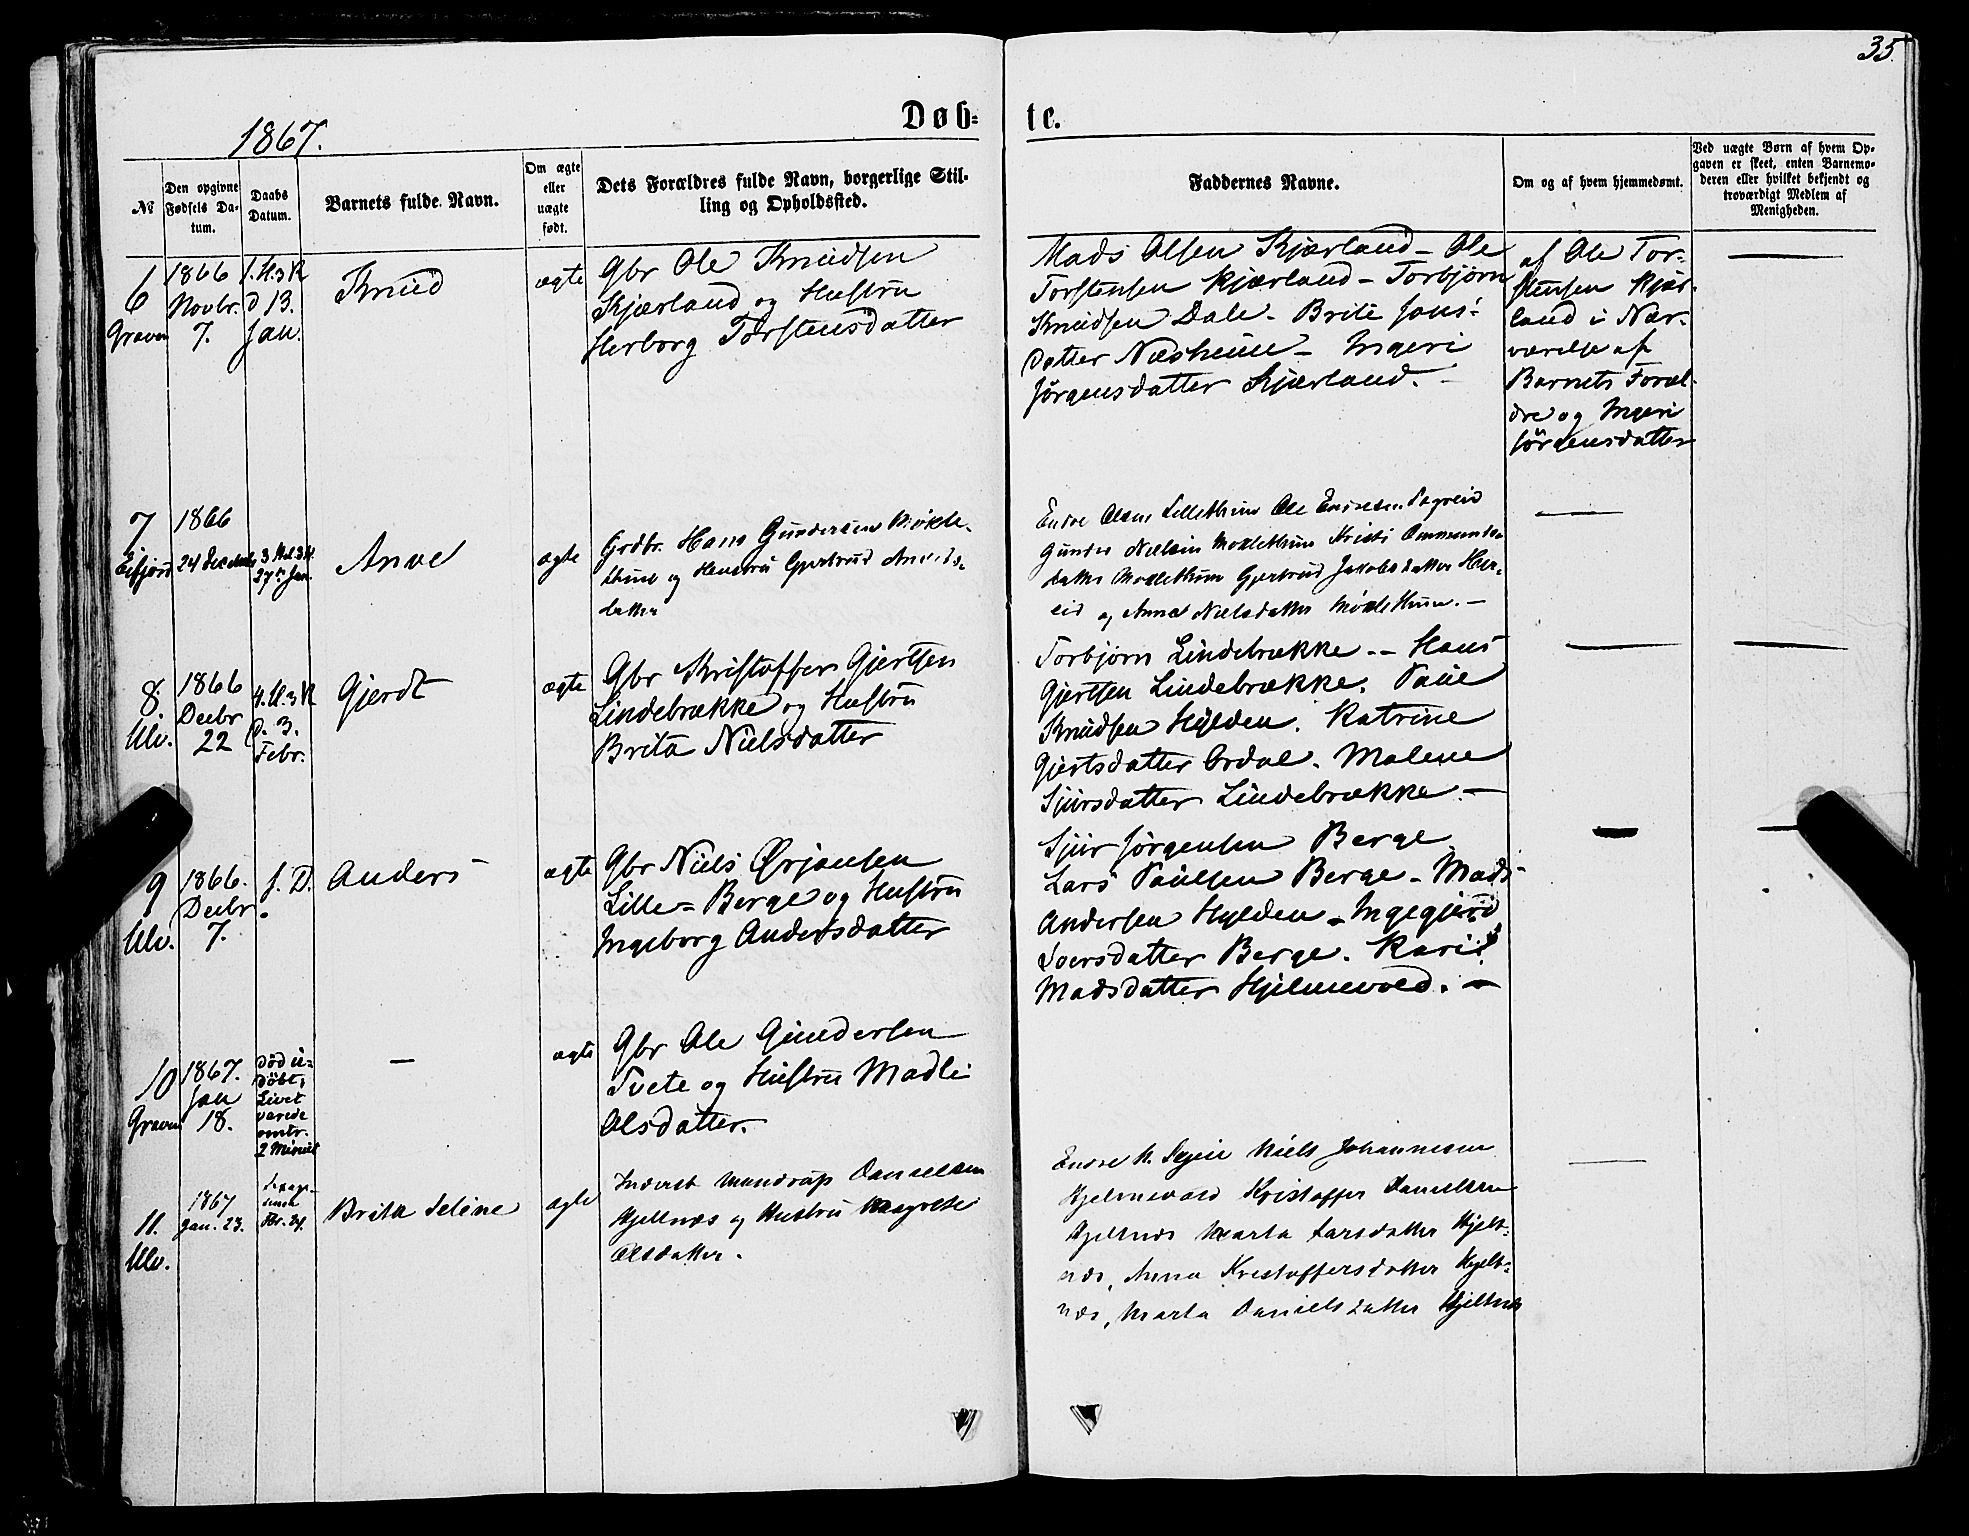 35.
Døb=
te.
1867.
№
Den opgivne Fødsels Da-
tum.
Daabs
Datum.
Barnets fulde Navn.
Om ægte
eller
uægte
født.
Dets Forældres fulde Navn, borgerlige Stil-
ling og Opholdssted.
Faddernes Navne.
Om og af hvem hjemmedømt.
Ved uægte Børn af hvem Op-
gaven er skeet, enten Barnemo-
deren eller hvilket bekjendt og
troværdigt Medlem af
Menigheden.
6
Graven
1866
Novbr.
7.
1. S. 3 K
d 13.
Jan.
Knud
ægte
Gbr Ole Knudsen
Kjærland og Hustru
Herborg Torstensdatter
Mads Olsen Kjærland - Ole
Torstensen Kjærland - Torbjørn
Knudsen Dale - Brite Jons-
datter Næsheim - Ingeri
Jørgensdatter Kjærland. -
af Ole Tor-
stensen Kjær-
land i Nær-
værelse af
Barnets Foræl-
dre og Ingeri
Jørgensdatter
7
Eifjord
1866
24 December
3 S. 3 K.
27de Jan.
Anve
ægte
Grdbr. Hans Gundersen Møkle-
thun og Hustru Gjertrud Arveds-
datter
Endre Olsen Lillethun Ole Endresen
Gunder Nielsen Moklethun Kristi Ommunds-
datter Moklethun Gjertrud Jakobsdatter Her-
eid og Anna Nielsdatter Møklethun. -
8.
Ulv.
1866
Decbr
22
4. S. 3 K
d. 3.
Febr.
Gjerdt
ægte
Gbr Kristoffer Gjertsen
Lindebrække og Hustru
Brita Nielsdatter
Torbjørn Lindebrække -- Hans
Gjertsen Lindebrække. Paul
Knudsen Hylden. Katrine
Gjertsdatter Ordal. Malene
Sjursdatter Lindebrække. -
9
Ulv.
1866.
Decbr
7.
s. D.
Anders
ægte
Gbr Niels Ørjansen
Lille=Berge og Hustru
Ingeborg Andersdatter
Sjur Jørgensen Berge
Lars Paulsen Berge - Mads
Andersen Hylden - Ingegjerd
Iversdatter Berge. Kari
Madsdatter Hjelmevold. -
10
Graven
1867.
Jan
18.
død u-
døbt;
Livet
varede
omtr.
2 Minut
-
ægte
Gbr Ole Gundersen
Tvete og Hustru Madli
Olsdatter.
11.
Ulv.
1867
Jan. 23.
Sexage-
sima
Fbr. 24.
Brita Seline
ægte
Inderst Mandrup Danielsen
Hjeltnæs og Hustru Margrethe
Olsdatter.
Endre H. Niels Johannesen
Hjelmevold Kristoffer Danielsen
Hjeltnæs Marta Larsdatter Hjelt-
næs, Anna Kristoffersdatter Hjelt-
næs, Marta Danielsdatter Hjeltnæs